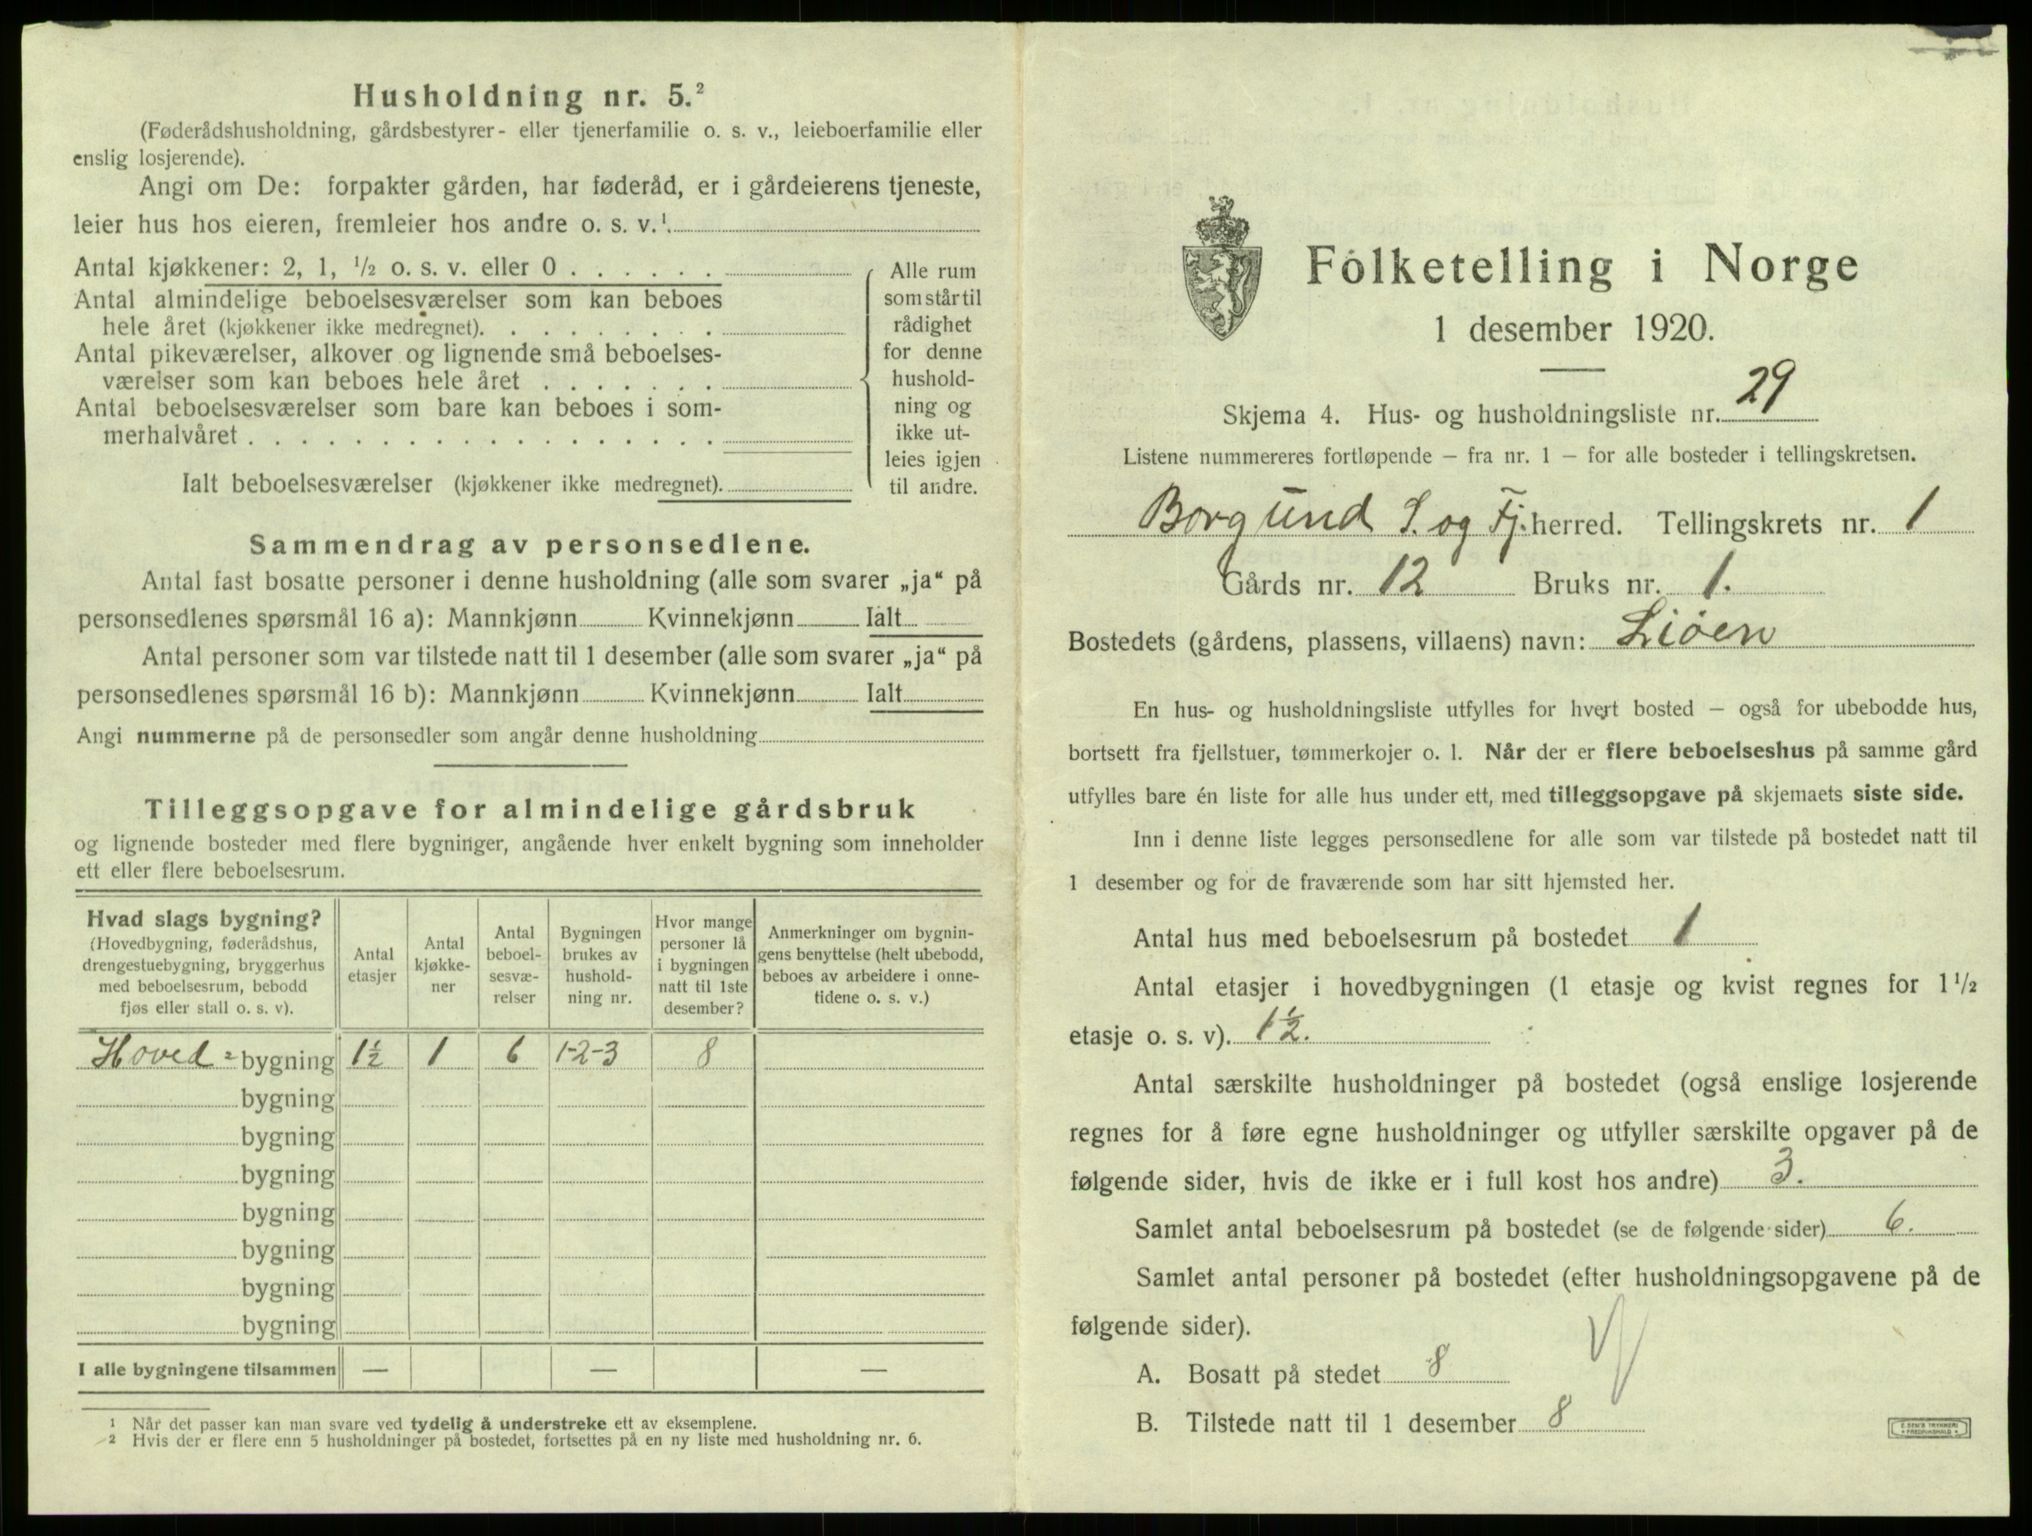 Husholdning nr. 5.²
(Føderådshusholdning, gårdsbestyrer- eller tjenerfamilie o. s. v., leieboerfamilie eller
enslig losjerende).
Angi om De: forpakter gården, har føderåd, er i gårdeierens tjeneste,
leier hus hos eieren, fremleier hos andre o. s. v.¹.
Antal kjøkkener: 2, 1, ½ o. s. v. eller 0 . . . . . .
Antal almindelige beboelsesværelser som kan beboes
hele året (kjøkkener ikke medregnet). . . . . . . . .
Antal pikeværelser, alkover og lignende små beboelses-
værelser som kan beboes hele året . . . . . . .
Antal beboelsesværelser som bare kan beboes i som-
merhalvåret . . . . . . . . . . . . . . . . . .
Ialt beboelsesværelser (kjøkkener ikke medregnet).
Alle rum
som står til
rådighet
for denne
hushold-
ning og
ikke ut-
leies igjen
til andre.
Sammendrag av personsedlene.
Antal fast bosatte personer i denne husholdning (alle som svarer „ja“ på
personsedlenes spørsmål 16 a): Mannkjønn Kvinnekjønn Ialt
Antal personer som var tilstede natt til 1 desember (alle som svarer „ja“ på
personsedlenes spørsmål 16 b): Mannkjønn Kvinnekjønn Ialt
Angi nummerne på de personsedler som angår denne husholdning
Tilleggsopgave for almindelige gårdsbruk
og lignende bosteder med flere bygninger, angående hver enkelt bygning som inneholder
ett eller flere beboelsesrum.
Hvad slags bygning?
(Hovedbygning, føderådshus,
drengestuebygning, bryggerhus
med beboelsesrum, bebodd
fjøs eller stall o. s. v).
Antal
etasjer
Antal
kjøkke-
ner
Antal
beboel-
sesvæ-
relser
Bygningen
brukes av
hushold-
ning nr.
Hvor mange
personer lå
i bygningen
natt til 1ste
desember?
Anmerkninger om bygnin-
gens benyttelse (helt ubebodd,
beboes av arbeidere i onne-
tidene o. s. v.)
Hoved = bygning 1½ 1 6 1-2-3 8
bygning
bygning
bygning
bygning
bygning
bygning
bygning
I alle bygningene tilsammen — — —
¹ Når det passer kan man svare ved tydelig å understreke ett av eksemplene.
² Hvis der er flere enn 5 husholdninger på bostedet, fortsettes på en ny liste med husholdning nr. 6.
Folketelling i Norge
1 desember 1920.
Skjema 4. Hus- og husholdningsliste nr. 29
Listene nummereres fortløpende – fra nr. 1 – for alle bosteder i tellingskretsen.
Borgund S. og Fj. herred. Tellingskrets nr. 1
Gårds nr. 12 Bruks nr. 1.
Bostedets (gårdens, plassens, villaens) navn: Liøen
En hus- og husholdningsliste utfylles for hvert bosted – også for ubebodde hus,
bortsett fra fjellstuer, tømmerkojer o. l. Når der er flere beboelseshus på samme gård
utfylles bare én liste for alle hus under ett, med tilleggsopgave på skjemaets siste side.
Inn i denne liste legges personsedlene for alle som var tilstede på bostedet natt til
1 desember og for de fraværende som har sitt hjemsted her.
Antal hus med beboelsesrum på bostedet 1
Antal etasjer i hovedbygningen (1 etasje og kvist regnes for 1½
etasje o. s. v). 1½.
Antal særskilte husholdninger på bostedet (også enslige losjerende
regnes for å føre egne husholdninger og utfyller særskilte opgaver på de
følgende sider, hvis de ikke er i full kost hos andre) 3.
Samlet antal beboelsesrum på bostedet (se de følgende sider) 6.
Samlet antal personer på bostedet (efter husholdningsopgavene på de
følgende sider).
A. Bosatt på stedet 8
B. Tilstede natt til 1 desember 8
E. SEM'S TRYKKERI
• FREDRIKSHALD •